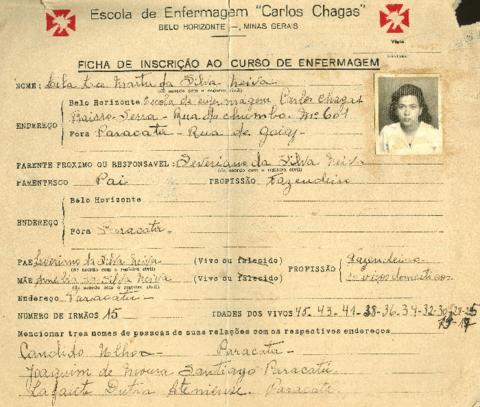 Escola de Enfermagem "Carlos Chagas"
BELO HORIZONTE —, MINAS GERAIS
FICHA DE INSCRIÇÃO AO CURSO DE ENFERMAGEM
NOME: da Silva Neiva
(de acordo com o registro civil)
Belo Horizonte Escola de enfermagem Carlos Chagas
ENDEREÇO Serra - Rua do Chumbo, Nº 601
Fóra Paracatú - Rua de Goiaz
PARENTE PROXIMO OU RESPONSAVEL: Severiano da Silva Neiva
(de acordo com o registro civil)
PARENTESCO Pai PROFISSÃO Fazendeiro
Belo Horizonte
ENDEREÇO
Fóra Paracatú.
PAE Severiano da Silva Neiva (Vivo ou falecido) PROFISSÃO Fazendeiro
(de acordo com o registro civil)
MÃE da Silva Neiva (Vivo ou falecido) serviços domesticos
(de acordo com o registro civil)
Endereço Paracatú
NÚMERO DE IRMÃOS 15 IDADES DOS VIVOS 45. 43. 41 - 38 - 36. 34 - 32 - 30
19 - 17
Mencionar tres nomes de pessoas de suas relações com os respectivos endereços
Candido Ulhoa - Paracatú -
Joaquim de Moura Santiago Paracatú
Lafaiete Dutra Paracatú